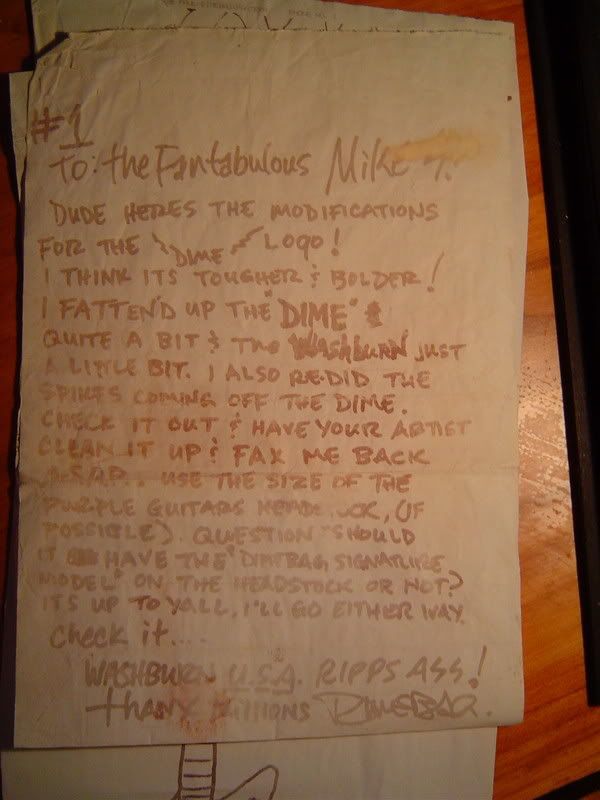 #1
To: the Fantabulous Mike
DUDE HERES THE MODIFICATIONS
FOR THE DIME LOGO!
I THINK ITS TOUGHER & BOLDER!
I FATTEND UP THE "DIME"
QUITE A BIT & THE WASHBURN JUST
A LITTLE BIT. I ALSO RE-DID THE
SPIKES COMING OFF THE DIME.
CHECK IT OUT & HAVE YOUR ARTIST
CLEAN IT UP & FAX ME BACK
A.S.A.P. USE THE SIZE OF THE
PURPLE GUITARS HEADSTOCK, (IF
POSSIBLE). QUESTION "SHOULD
IT HAVE THE "DIMEBAG SIGNATURE
MODEL" ON THE HEADSTOCK OR NOT?
ITS UP TO YALL, I'LL GO EITHER WAY.
Check it....
WASHBURN U.S.A. RIPPS ASS!
thanx ZILLIONS DIMEBAG.